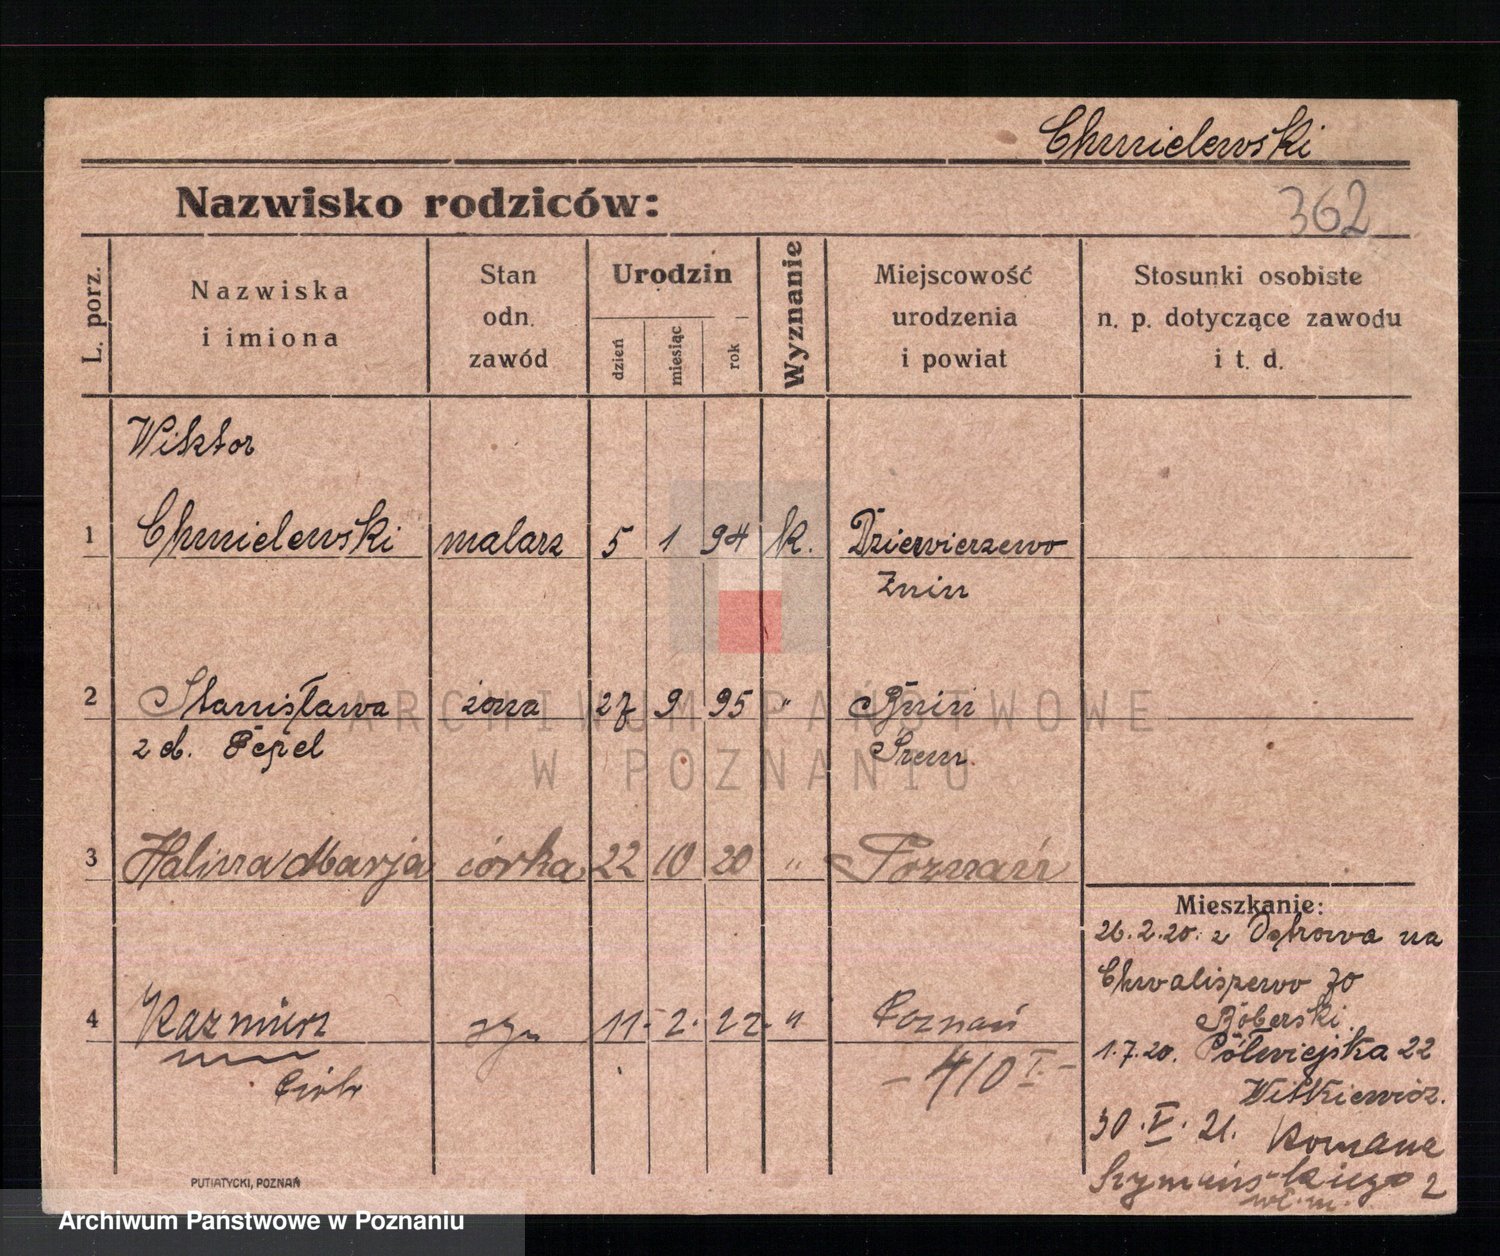 Chmielewski
Nazwisko rodziców:
362
L. porz.
Nazwiska
i imiona
Stan
odn.
zawód
Urodzin
dzień
miesiąc
rok
Wyznanie
Miejscowość
urodzenia
i powiat
Stosunki osobiste
n. p. dotyczące zawodu
i t. d.
Wiktor
1 Chmielewski malarz 5 1 94 k. Dziewierzewo
Żnin
2 Stanisława żona 27 9 95 " Bnin
z d. Pepel Śrem.
3 Halina Marja córka 22 10 20 " Poznań
4 Kazmierz syn 11. 2. 22. " Poznań
Piotr
- 410 I. -
Mieszkanie:
26.2.20. z Dębrowa na
Chwaliszewo 70
Boberski.
1.7.20. Półwiejska 22
Witkiewicz.
30.V.21. Romana
Szymańskiego 2
wł. m.
PUTIATYCKI, POZNAŃ
ARCHIWUM PAŃSTWOWE
W POZNANIU
Archiwum Państwowe w Poznaniu